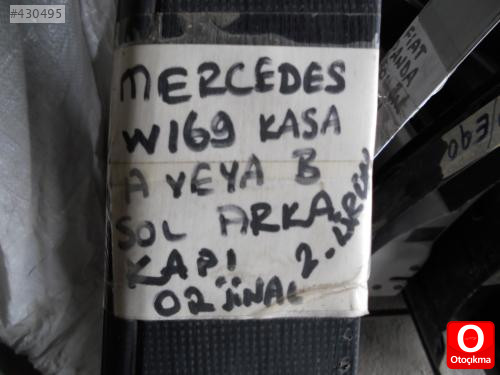 #430495
MERCEDES
W169 KASA
A VEYA B
SOL ARKA
KAPI 2.
ORJİNAL
FIAT
PANDA
E90
O
Otoçıkma